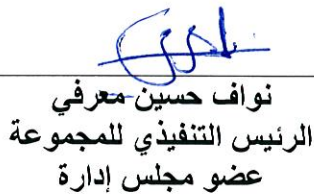 نواف حسين معرفي
الرئيس التنفيذي للمجموعة
عضو مجلس إدارة